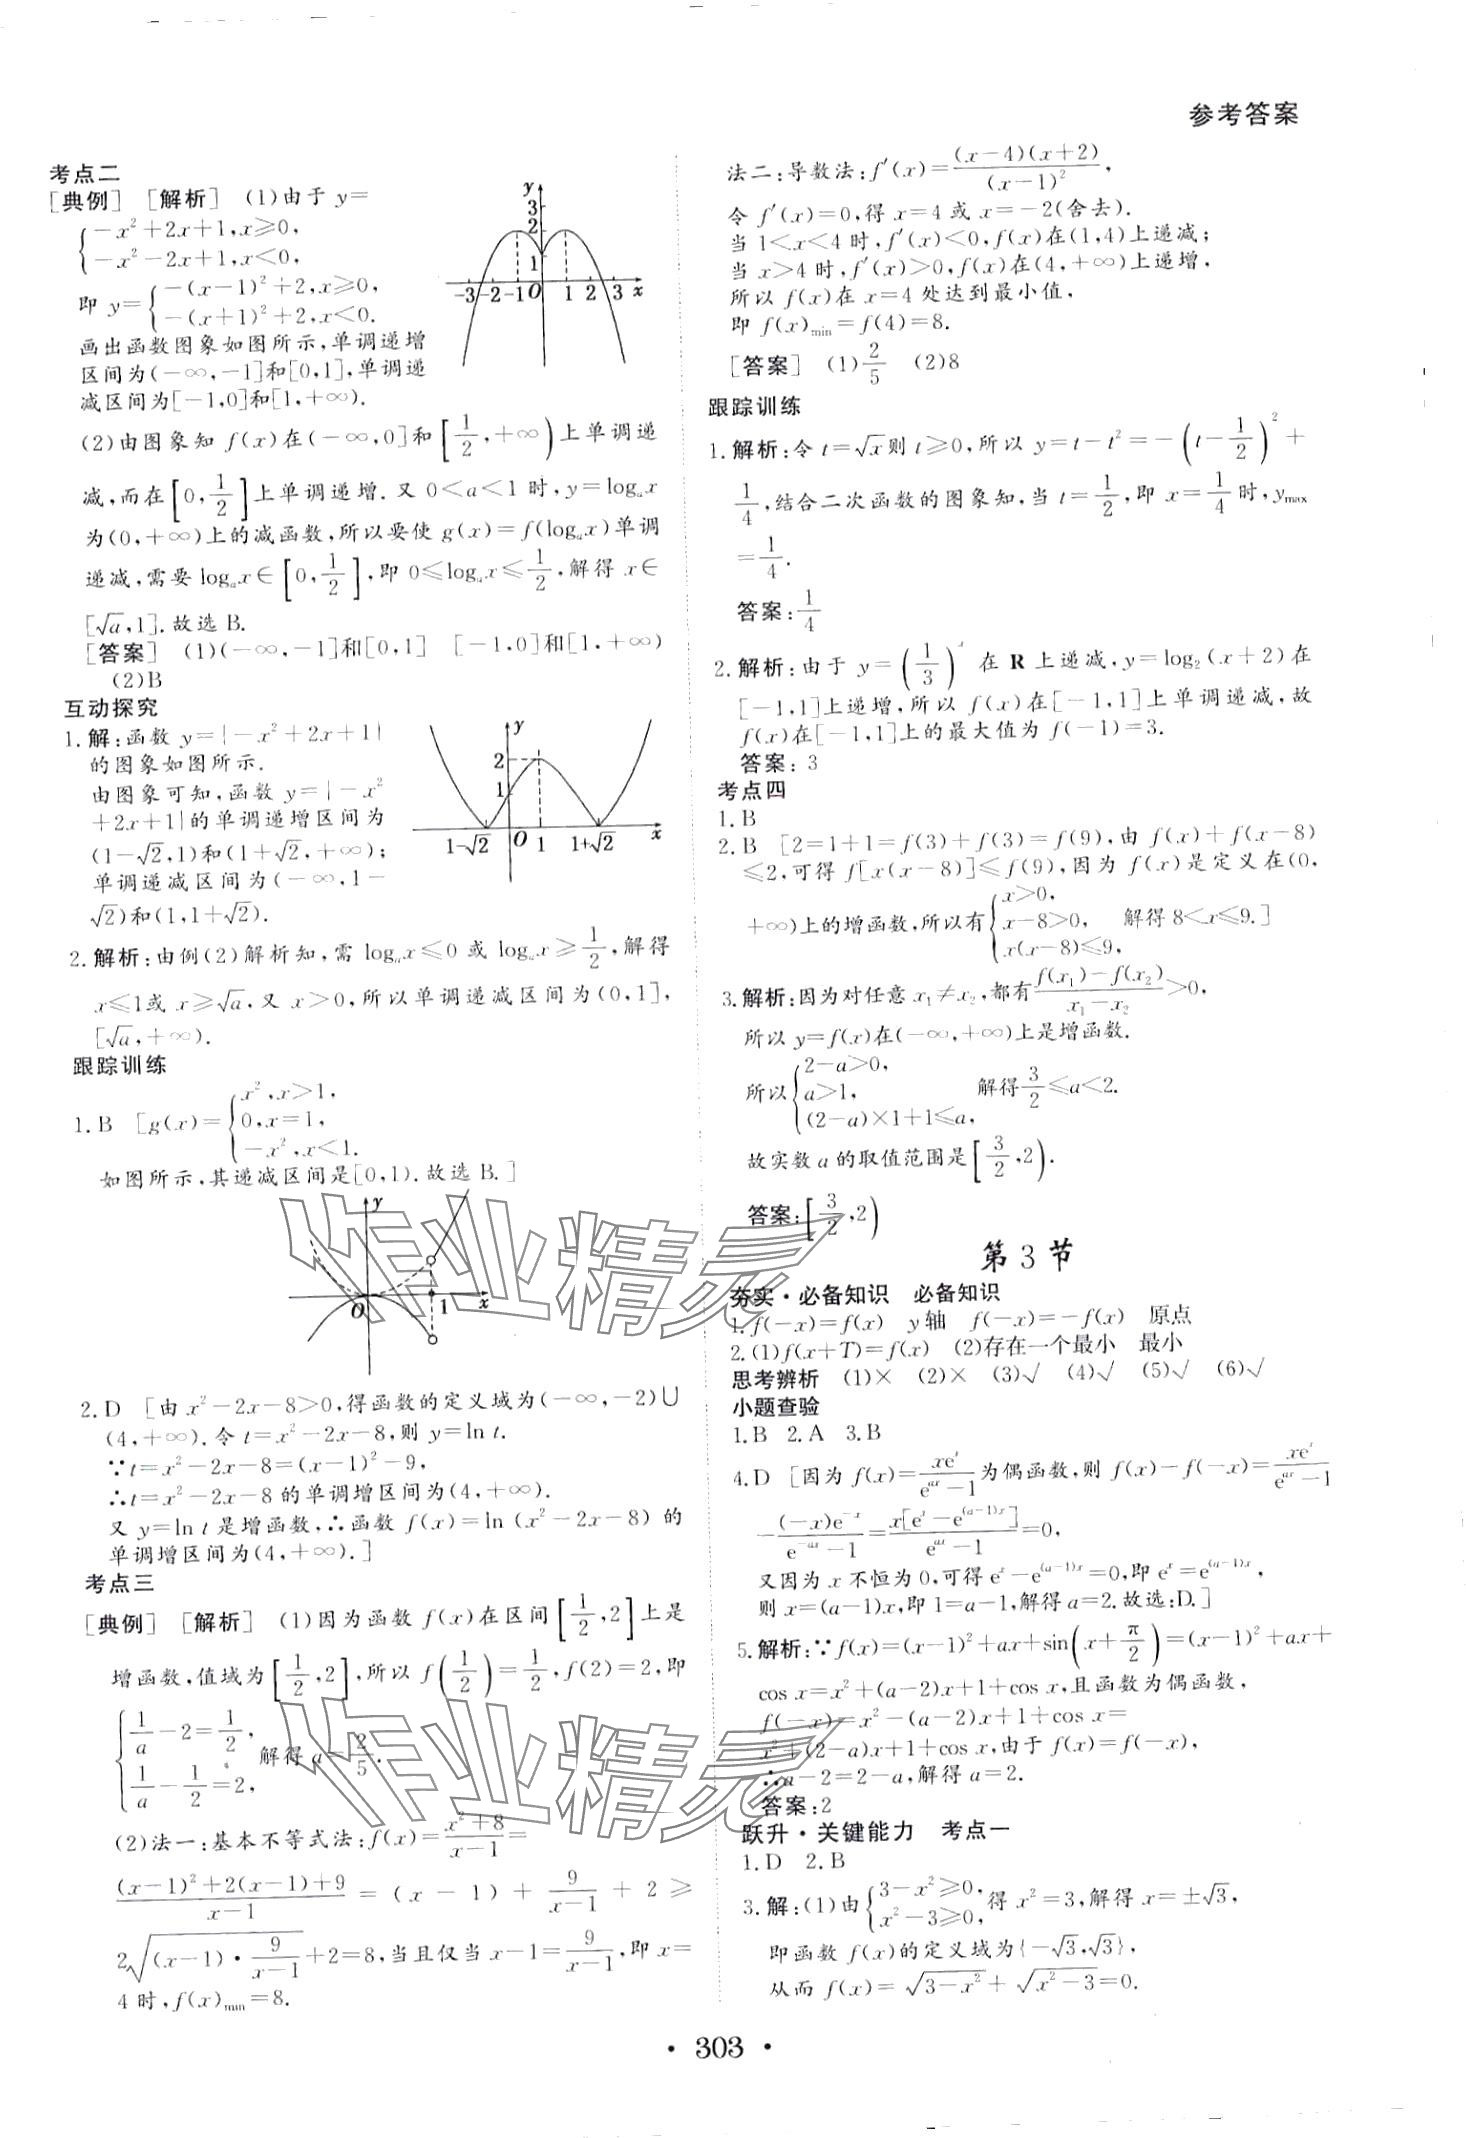 参考答案
考点二
[典例] [解析] (1)由于 y=
{−x²+2x+1,x≥0,
−x²−2x+1,x<0,
即 y={−(x−1)²+2,x≥0,
−(x+1)²+2,x<0.
画出函数图象如图所示,单调递增
区间为(−∞,−1]和[0,1],单调递
减区间为[−1,0]和[1,+∞).
y
3
2
1
−3 −2 −1 O 1 2 3 x
(2)由图象知 f(x)在(−∞,0]和[1/2,+∞)上单调递
减,而在[0,1/2]上单调递增.又 0<a<1 时,y=logₐx
为(0,+∞)上的减函数,所以要使 g(x)=f(logₐx)单调
递减,需要 logₐx∈[0,1/2],即 0≤logₐx≤1/2,解得 x∈
[√a,1].故选 B.
[答案] (1)(−∞,−1]和[0,1] [−1,0]和[1,+∞)
(2)B
互动探究
1.解:函数 y=|−x²+2x+1|
的图象如图所示.
由图象可知,函数 y=|−x²
+2x+1|的单调递增区间为
(1−√2,1)和(1+√2,+∞);
单调递减区间为(−∞,1−
√2)和(1,1+√2).
y
2
1
1−√2 O 1 1+√2 x
2.解析:由例(2)解析知,需 logₐx≤0 或 logₐx≥1/2,解得
x≤1或 x≥√a,又 x>0,所以单调递减区间为(0,1],
[√a,+∞).
跟踪训练
1.B [g(x)={x²,x>1,
0,x=1,
−x²,x<1.
如图所示,其递减区间是[0,1).故选 B.]
y
O 1 x
2.D [由 x²−2x−8>0,得函数的定义域为(−∞,−2)∪
(4,+∞).令 t=x²−2x−8,则 y=ln t.
∵t=x²−2x−8=(x−1)²−9,
∴t=x²−2x−8 的单调增区间为(4,+∞).
又 y=ln t 是增函数,∴函数 f(x)=ln (x²−2x−8) 的
单调增区间为(4,+∞).]
考点三
[典例] [解析] (1)因为函数 f(x)在区间[1/2,2]上是
增函数,值域为[1/2,2],所以 f(1/2)=1/2,f(2)=2,即
{1/a−2=1/2,
1/a−1/2=2,
解得 a=2/5.
(2)法一:基本不等式法:f(x)=(x²+8)/(x−1)=
((x−1)²+2(x−1)+9)/(x−1)=(x−1)+9/(x−1)+2≥
2√((x−1)·9/(x−1))+2=8,当且仅当 x−1=9/(x−1),即 x=
4 时,f(x)min=8.
法二:导数法:f′(x)=(x−4)(x+2)/(x−1)²,
令 f′(x)=0,得 x=4 或 x=−2(舍去).
当 1<x<4 时,f′(x)<0,f(x)在(1,4)上递减;
当 x>4 时,f′(x)>0,f(x)在(4,+∞)上递增,
所以 f(x)在 x=4 处达到最小值,
即 f(x)min=f(4)=8.
[答案] (1)2/5 (2)8
跟踪训练
1.解析:令 t=√x则 t≥0,所以 y=t−t²=−(t−1/2)²+
1/4,结合二次函数的图象知,当 t=1/2,即 x=1/4时,ymax
=1/4.
答案:1/4
2.解析:由于 y=(1/3)ˣ 在 R 上递减,y=log₂(x+2)在
[−1,1]上递增,所以 f(x)在[−1,1]上单调递减,故
f(x)在[−1,1]上的最大值为 f(−1)=3.
答案:3
考点四
1.B
2.B [2=1+1=f(3)+f(3)=f(9),由 f(x)+f(x−8)
≤2,可得 f[x(x−8)]≤f(9),因为 f(x)是定义在(0,
+∞)上的增函数,所以有{x>0,
x−8>0,
x(x−8)≤9,
解得 8<x≤9.]
3.解析:因为对任意 x₁≠x₂,都有(f(x₁)−f(x₂))/(x₁−x₂)>0,
所以 y=f(x)在(−∞,+∞)上是增函数.
所以{2−a>0,
a>1,
(2−a)×1+1≤a,
解得3/2≤a<2.
故实数 a 的取值范围是[3/2,2).
答案:[3/2,2)
第 3 节
夯实·必备知识 必备知识
1.f(−x)=f(x) y轴 f(−x)=−f(x) 原点
2.(1)f(x+T)=f(x) (2)存在一个最小 最小
思考辨析 (1)× (2)× (3)√ (4)√ (5)√ (6)√
小题查验
1.B 2.A 3.B
4.D [因为 f(x)=xeˣ/(eᵃˣ−1)为偶函数,则 f(x)−f(−x)=xeˣ/(eᵃˣ−1)
−(−x)e⁻ˣ/(e⁻ᵃˣ−1)=x[eˣ−e⁽ᵃ⁻¹⁾ˣ]/(eᵃˣ−1)=0,
又因为 x 不恒为 0,可得 eˣ−e⁽ᵃ⁻¹⁾ˣ=0,即 eˣ=e⁽ᵃ⁻¹⁾ˣ,
则 x=(a−1)x,即 1=a−1,解得 a=2.故选:D.]
5.解析:∵f(x)=(x−1)²+ax+sin(x+π/2)=(x−1)²+ax+
cos x=x²+(a−2)x+1+cos x,且函数为偶函数,
f(−x)=x²−(a−2)x+1+cos x=
x²+(2−a)x+1+cos x,由于 f(x)=f(−x),
∴a−2=2−a,解得 a=2.
答案:2
跃升·关键能力 考点一
1.D 2.B
3.解:(1)由{3−x²≥0,
x²−3≥0,
得 x²=3,解得 x=±√3,
即函数 f(x)的定义域为{−√3,√3},
从而 f(x)=√(3−x²)+√(x²−3)=0.
作业精灵
作业精灵
·303·